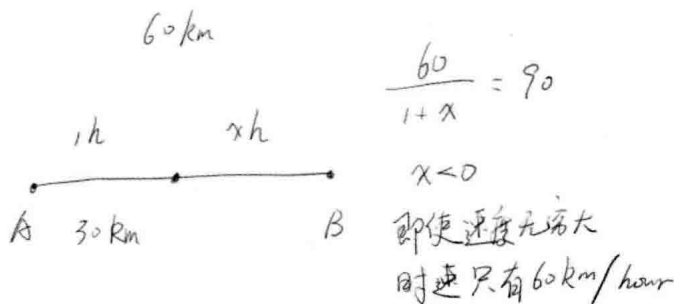 60km
1h xh
A 30km B
60/(1+x) = 90
x<0
即使速度无穷大
时速只有60km/hour